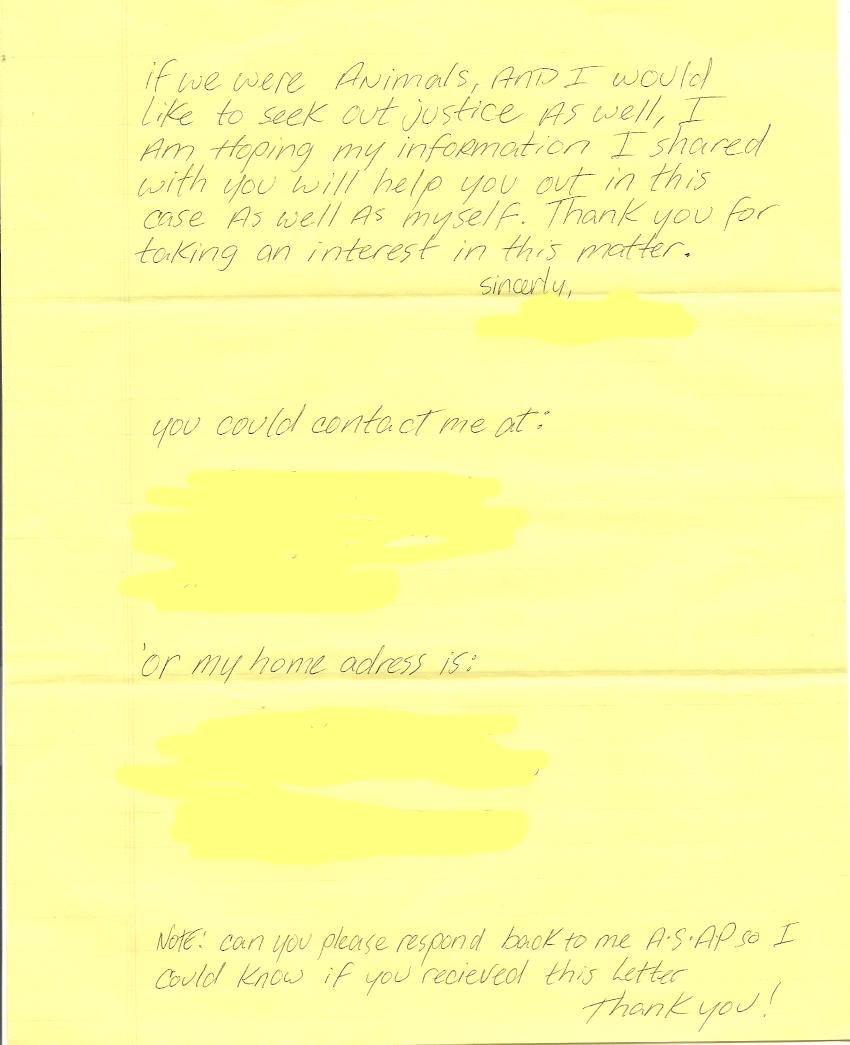 if we were Animals, AND I would
like to seek out justice As well, I
Am Hoping my information I shared
with you will help you out in this
case As well As myself. Thank you for
taking an interest in this matter.
sincerly,
you could contact me at:
'or my home adress is:
NOTE: can you please respond back to me A.S.AP so I
could know if you recieved this Letter
Thank you!